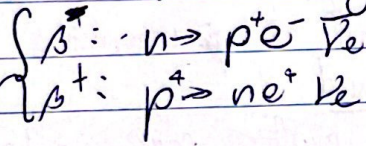 β⁻: n → p⁺e⁻ ν̅e
β⁺: p⁺ → ne⁺ νe